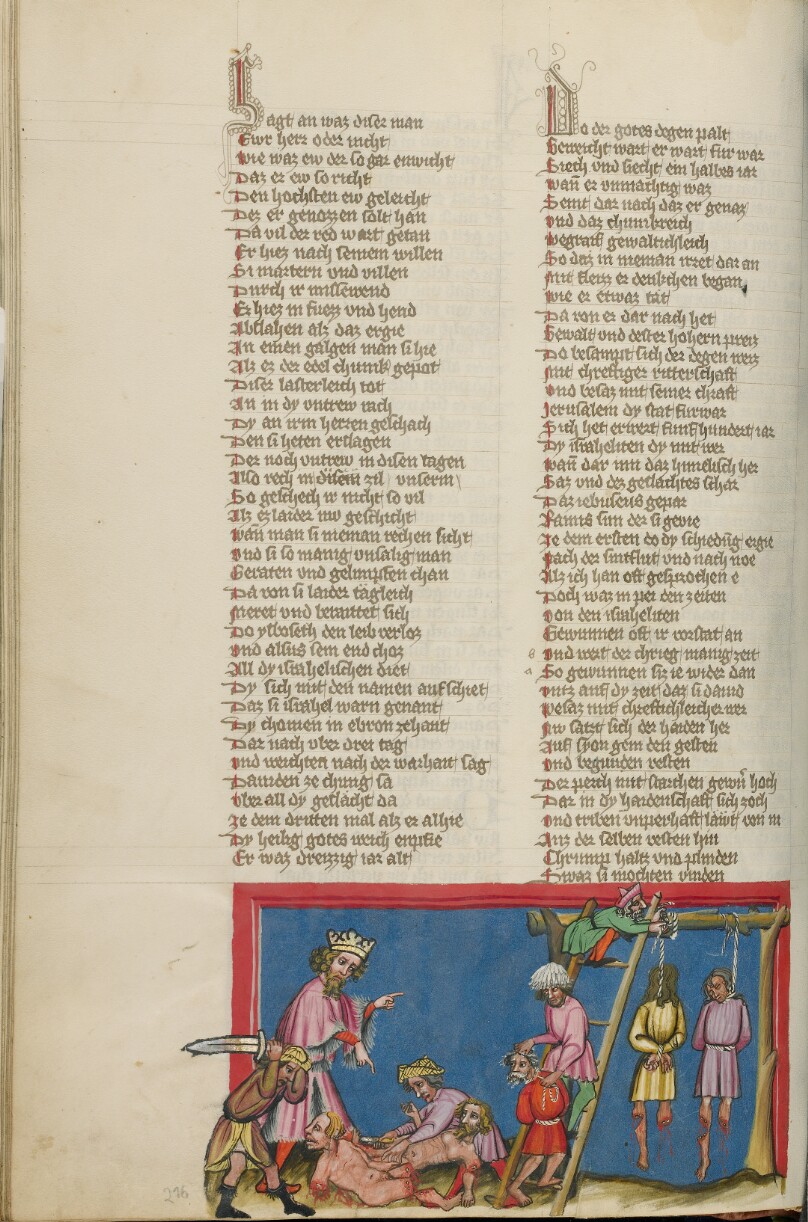 Sagt an waz diser man
Ewr herr oder nicht
Wie waz ew der so gar enwicht
Daz er ew so richt
Den hochsten ew geleicht
Dez er genozzen solt han
Da vil der red wart getan
Er hiez nach seinem willen
Si martern vnd villen
Durch ir missewend
Er hiez in fuezz vnd hend
Abslahen alz daz ergie
An einen galgen man si hie
Alz ez der edel chunik gepot
Diser lasterleich tot
An in dy vntrew rach
Dy an irm herren geschach
Den si heten erslagen
Der noch vntrew in disen tagen
Also rech in disem zil vnserm
So geschech ir nicht so vil
Alz ez laider nw geschicht
Wan man si nieman rechen sicht
Vnd si so manig vnsalig man
Geraten vnd gelimpfen chan
Da von si laider tagleich
Meret vnd beraittet sich
Do ysboseth den leib verloz
Vnd alsus sein end choz
All dy israhelischen diet
Dy sich mit den namen aufschiet
Daz si israhel warn genant
Dy chomen in ebron zehant
Dar nach vber drei tag
Vnd weichten nach der warhait sag
Dauiden ze chunig sa
Vber all dy geslächt da
Ze dem driten mal alz er alhie
Dy heilig gotes weich enpfie
Er waz dreizzig iar alt
Do der gotes degen palt
Geweicht wart er wart fur war
Siech vnd siecht ein halbes iar
Wann er vnmachtig waz
Seint dar nach daz er genaz
Vnd daz chunikreich
Begraif gewaltichleich
So daz in nieman irret dar an
Mit fleizz er denkchen began
Wie er etwaz tät
Da von er dar nach het
Gewalt vnd dester hohern preis
Do besampt sich der degen weis
Mit chreftiger ritterschaft
Vnd besaz mit seiner chraft
Jerusalem dy stat furwar
Sich het erwert funf hundert iar
Dy israheliten dy mit wer
Wann dar inn daz himelisch her
Saz vnd dez geslachtes schar
Daz iebuseus gepar
Kamis sun der si gevie
Ze dem ersten do dy schiedung ergie
Nach der sintflut vnd nach noe
Alz ich han oft gesprochen e
Doch waz in per den zeiten
Von den israheliten
Gewunnen oft ir vorstat an
Vnd wert der chrieg manig zeit
So gewunnen siz ie wider dan
Vntz auf dy zeit daz si dauid
Besaz mit chreftichleicher wer
Nw satzt sich der haiden her
Auf syon gein den gesten
Vnd begunden vesten
Der perch mit starchen gewern hoch
Dar in dy haidenschaft sich zoch
Vnd triben vnperhaft läwt von in
Auz der selben vesten hin
Chrump haltz vnd plinden
Swaz si mochten vinden
216